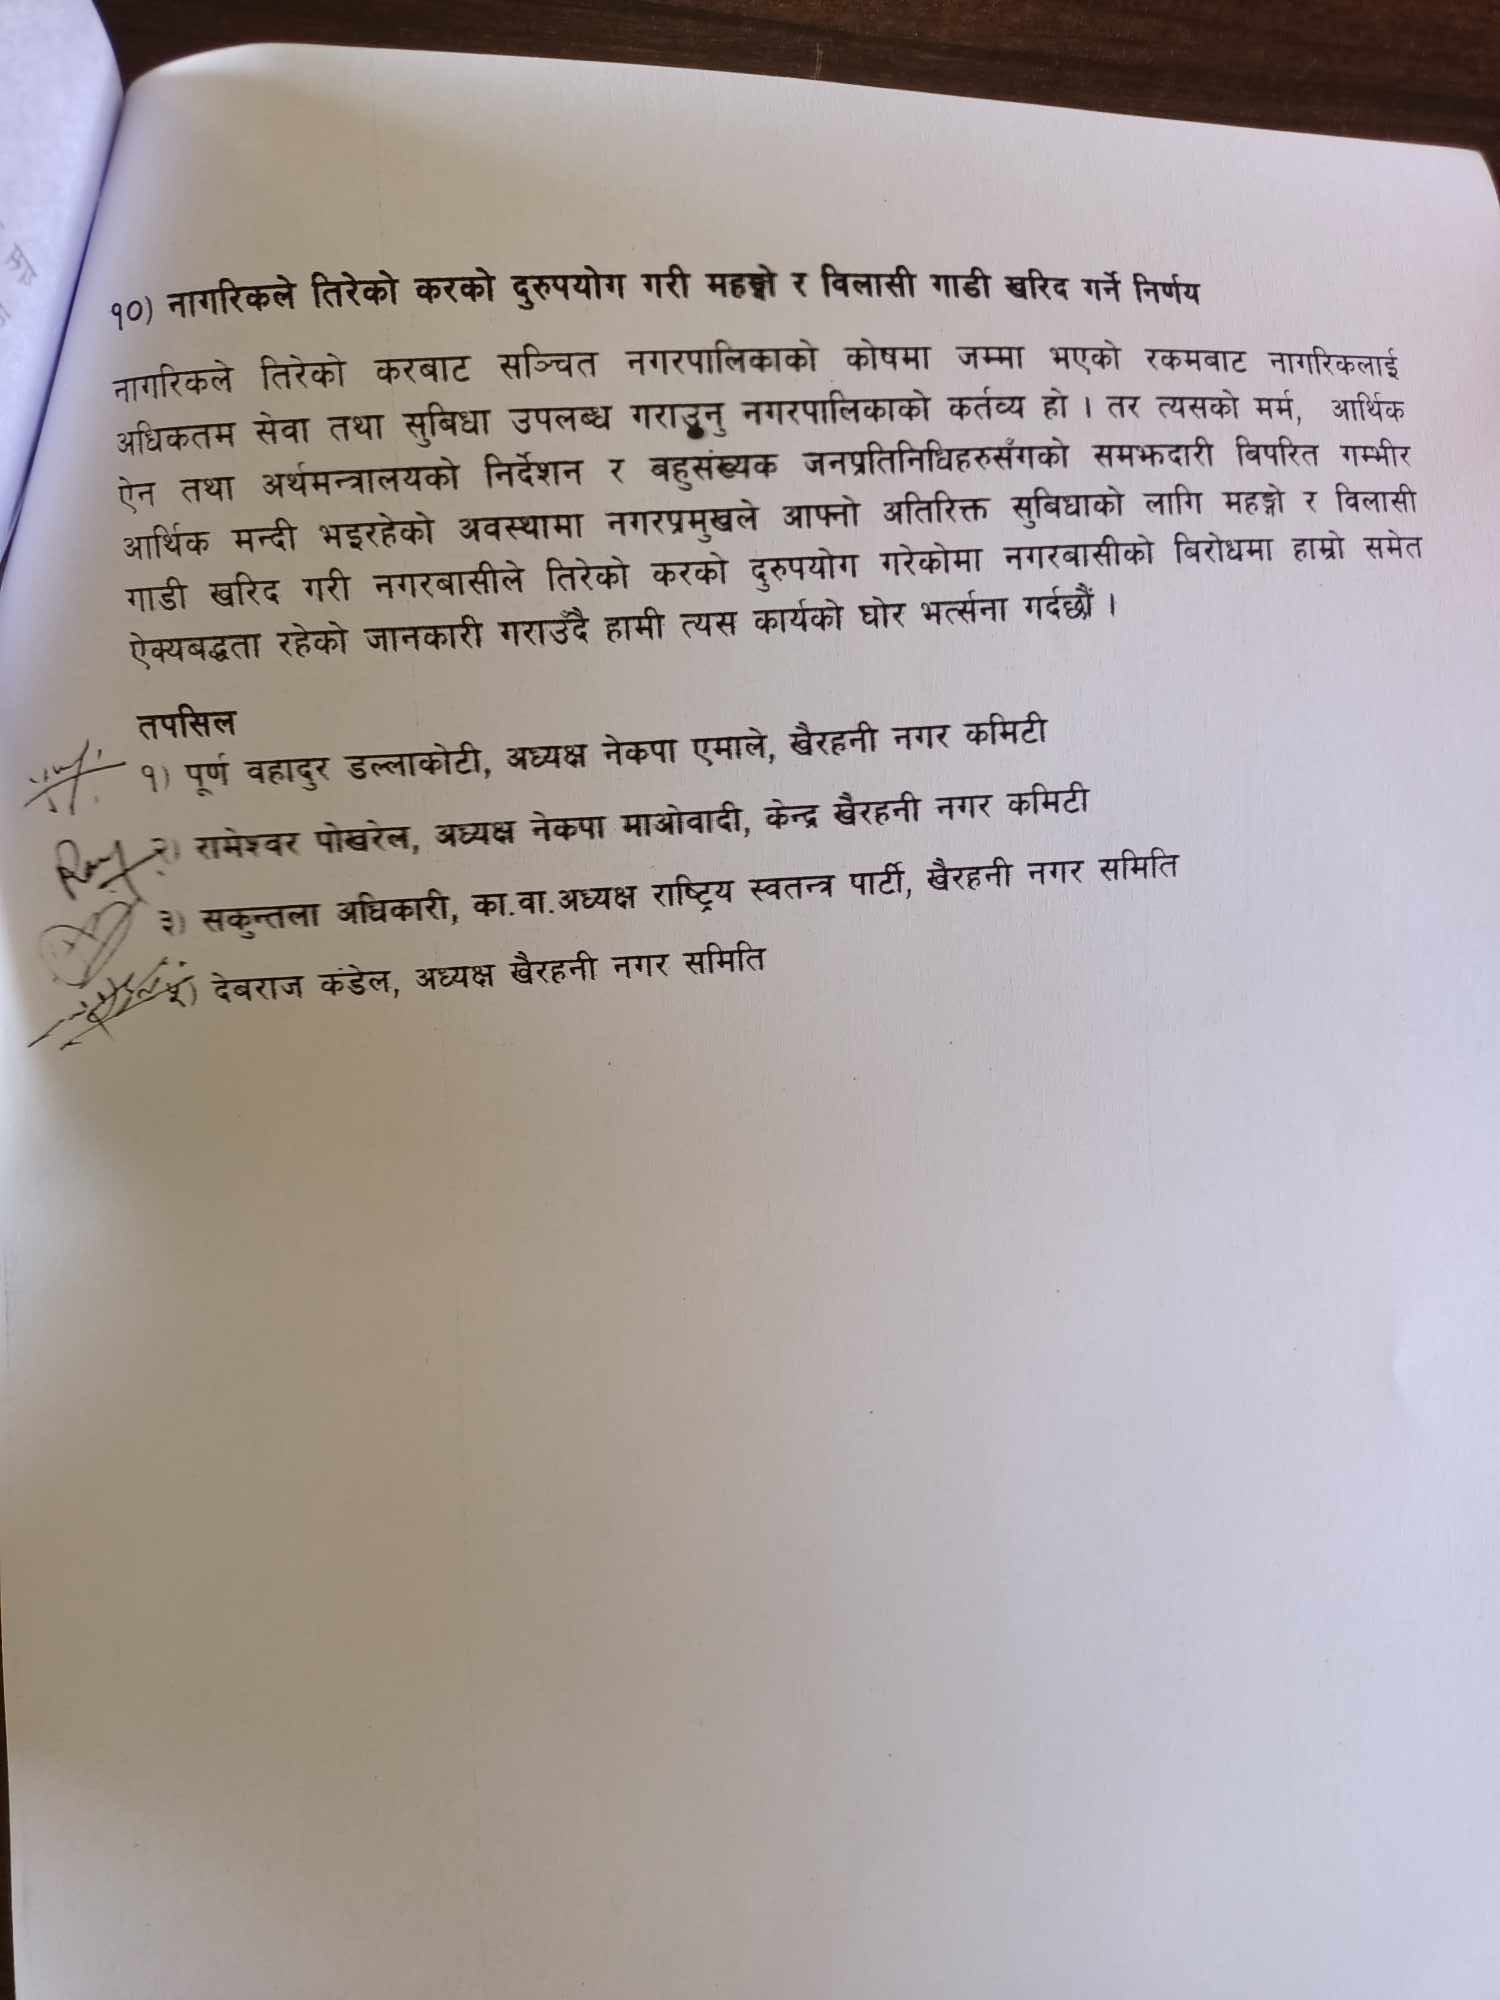 १०) नागरिकले तिरेको करको दुरुपयोग गरी महङ्गो र विलासी गाडी खरिद गर्ने निर्णय
नागरिकले तिरेको करबाट सञ्चित नगरपालिकाको कोषमा जम्मा भएको रकमबाट नागरिकलाई
अधिकतम सेवा तथा सुबिधा उपलब्ध गराउनु नगरपालिकाको कर्तव्य हो । तर त्यसको मर्म, आर्थिक
ऐन तथा अर्थमन्त्रालयको निर्देशन र बहुसंख्यक जनप्रतिनिधिहरुसँगको समझदारी बिपरित गम्भीर
आर्थिक मन्दी भइरहेको अवस्थामा नगरप्रमुखले आफ्नो अतिरिक्त सुबिधाको लागि महङ्गो र विलासी
गाडी खरिद गरी नगरबासीले तिरेको करको दुरुपयोग गरेकोमा नगरबासीको बिरोधमा हाम्रो समेत
ऐक्यबद्धता रहेको जानकारी गराउँदै हामी त्यस कार्यको घोर भर्त्सना गर्दछौं ।
तपसिल
१) पूर्ण वहादुर डल्लाकोटी, अध्यक्ष नेकपा एमाले, खैरहनी नगर कमिटी
२) रामेश्वर पोखरेल, अध्यक्ष नेकपा माओवादी, केन्द्र खैरहनी नगर कमिटी
३) सकुन्तला अधिकारी, का.वा.अध्यक्ष राष्ट्रिय स्वतन्त्र पार्टी, खैरहनी नगर समिति
) देबराज कंडेल, अध्यक्ष खैरहनी नगर समिति